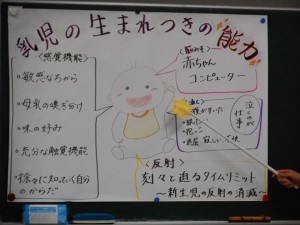 乳児の生まれつきの能力
<感覚機能>
・敏感なちから
・母乳の嗅ぎ分け
・味の好み
・充分な触覚機能
・徐々に知っていく自分
のからだ
赤ちゃん
コンピューター
泣くのが
仕事
<反射>
刻々と迫るタイムリミット
～新生児の反射の消滅～